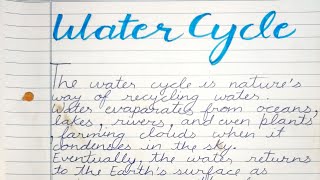 Water Cycle
The water cycle is nature's
way of recycling water.
Water evaporates from oceans,
lakes, rivers, and even plants
, farming clouds when it
condenses in the sky.
Eventually, the water returns
to the Earth's surface as